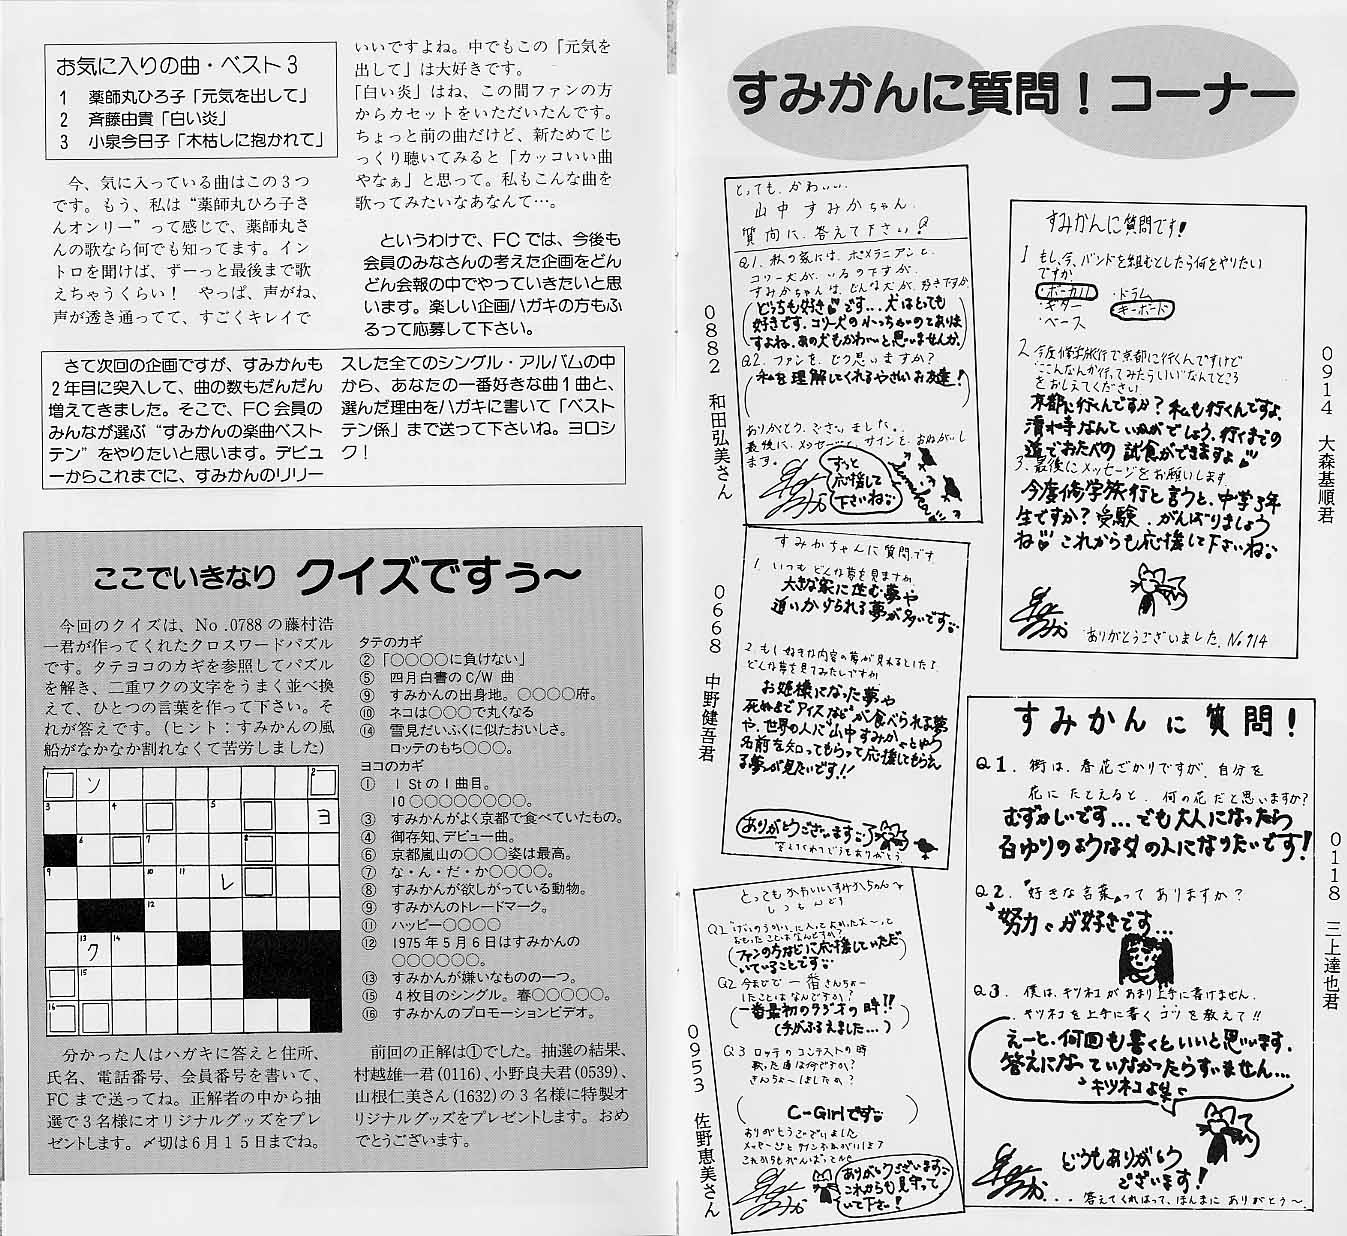 お気に入りの曲・ベスト3
1 薬師丸ひろ子「元気を出して」
2 斉藤由貴「白い炎」
3 小泉今日子「木枯しに抱かれて」
今、気に入っている曲はこの3つ
です。もう、私は“薬師丸ひろ子さ
んオンリー”って感じで、薬師丸さ
んの歌なら何でも知ってます。イン
トロを聞けば、ずーっと最後まで歌
えちゃうくらい! やっぱ、声がね、
声が透き通ってて、すごくキレイで
いいですよね。中でもこの「元気を
出して」は大好きです。
「白い炎」はね、この間ファンの方
からカセットをいただいたんです。
ちょっと前の曲だけど、新ためてじ
っくり聴いてみると「カッコいい曲
やなぁ」と思って。私もこんな曲を
歌ってみたいなあなんて…。
というわけで、FCでは、今後も
会員のみなさんの考えた企画をどん
どん会報の中でやっていきたいと思
います。楽しい企画ハガキの方もふ
るって応募して下さい。
さて次回の企画ですが、すみかんも
2年目に突入して、曲の数もだんだん
増えてきました。そこで、FC会員の
みんなが選ぶ“すみかんの楽曲ベスト
テン”をやりたいと思います。デビュ
ーからこれまでに、すみかんのリリー
スした全てのシングル・アルバムの中
から、あなたの一番好きな曲1曲と、
選んだ理由をハガキに書いて「ベスト
テン係」まで送って下さいね。ヨロシ
ク!
ここでいきなり クイズですぅ〜
今回のクイズは、No.0788の藤村浩
一君が作ってくれたクロスワードパズル
です。タテヨコのカギを参照してパズル
を解き、二重ワクの文字をうまく並べ換
えて、ひとつの言葉を作って下さい。そ
れが答えです。(ヒント:すみかんの風
船がなかなか割れなくて苦労しました)
タテのカギ
② 「○○○○に負けない」
⑤ 四月白書のC/W曲
⑨ すみかんの出身地。○○○○府。
⑩ ネコは○○○で丸くなる
⑭ 雪見だいふくに似たおいしさ。
ロッテのもち○○○。
ヨコのカギ
① 1Stの1曲目。
10○○○○○○○○。
③ すみかんがよく京都で食べていたもの。
④ 御存知、デビュー曲。
⑥ 京都嵐山の○○○姿は最高。
⑦ な・ん・だ・か○○○○。
⑧ すみかんが欲しがっている動物。
⑨ すみかんのトレードマーク。
⑪ ハッピー○○○○
⑫ 1975年5月6日はすみかんの
○○○○○○。
⑬ すみかんが嫌いなものの一つ。
⑮ 4枚目のシングル。春○○○○○。
⑯ すみかんのプロモーションビデオ。
ソ
ヨ
レ
ク
分かった人はハガキに答えと住所、
氏名、電話番号、会員番号を書いて、
FCまで送ってね。正解者の中から抽
選で3名様にオリジナルグッズをプレ
ゼントします。〆切は6月15日までね。
前回の正解は①でした。抽選の結果、
村越雄一君(0116)、小野良夫君(0539)、
山根仁美さん(1632)の3名様に特製オ
リジナルグッズをプレゼントします。おめ
でとうございます。
すみかんに質問!コーナー
とっても、かわいい、
山中すみかちゃん、
質問に、答えて下さい!
Q1. 私の家には、ポメラニアンと、
コリー犬が、いるのですが、
すみかちゃんは、どんな犬が、好きですか
(どっちも好きです…犬はとても
好きです。コリー犬の小っちゃいのてありま
すよね。あの犬もかわいーと思いませんか。)
Q2. ファンを、どう思いますか?
(私を理解してくれるやさしいお友達!)
ありがとう、ございました。
最後に、メッセージと、サインを、おねがいし
ます。
ずっと
応援して
下さいね
0882 和田弘美さん
すみかんに質問です!
1 もし、今、バンドを組むとしたら何をやりたい
ですか
・ボーカル ・ドラム
・ギター ・キーボード
・ベース
2. 今度修学旅行で京都に行くんですけど
ここなんか行ってみたらいいなんてところ
をおしえてください
京都に行くんですか?私も行くんですよ。
清水寺なんていかがでしょう。行くまでの
道でおたべの試食ができますよ
3. 最後にメッセージをお願いします
今度修学旅行と言うと、中学3年
生ですか?受験、がんばりましょう
ね これからも応援して下さいね
ありがとうございました。No.914
0914 大森基順君
すみかちゃんに質問です
1. いつもどんな夢を見ますか
大きな家に住む夢や
追いかけられる夢が多いです
2. もし好きな内容の夢が見れるとしたら
どんな夢を見てみたいですか
お姫様になった夢や
死ぬまでアイスなどが食べられる夢
や、世界の人に山中すみかという
名前を知ってもらって応援してもらえ
る夢が見たいです!!
ありがとうございます
答えてくれてどうもありがとう
0668 中野健吾君
とってもかわいいすみかちゃんへ
しつもんです
Q1 げいのうかいに入ってよかったなーと
おもったことはなんですか?
(ファンの方などに応援していただ
いていることです)
Q2 今までで一番きんちょー
したことはなんですか?
(一番最初のラジオの時!!
(手がふるえました…)
Q3 ロッテのコンテストの時
歌った曲は何ですか?
きんちょーしましたか?
(C-Girlです)
ありがとうございました
ありがとうございます
これからも見守って
いて下さい!
0953 佐野恵美さん
すみかんに質問!
Q1. 街は、春花ざかりですが、自分を
花にたとえると、何の花だと思いますか?
むずかしいです…でも大人になったら
白ゆりのような女の人になりたいです!
Q2. “好きな言葉”ってありますか?
“努力”が好きです…
Q3. 僕は、キツネコがあまり上手に書けません。
キツネコを上手に書くコツを教えて!!
えーと、何回も書くといいと思います。
答えになっていなかったらすいません…
キツネコより
どうもありがとう
ございます!
...答えてくれはって、ほんまにありがとう〜。
0118 三上達也君